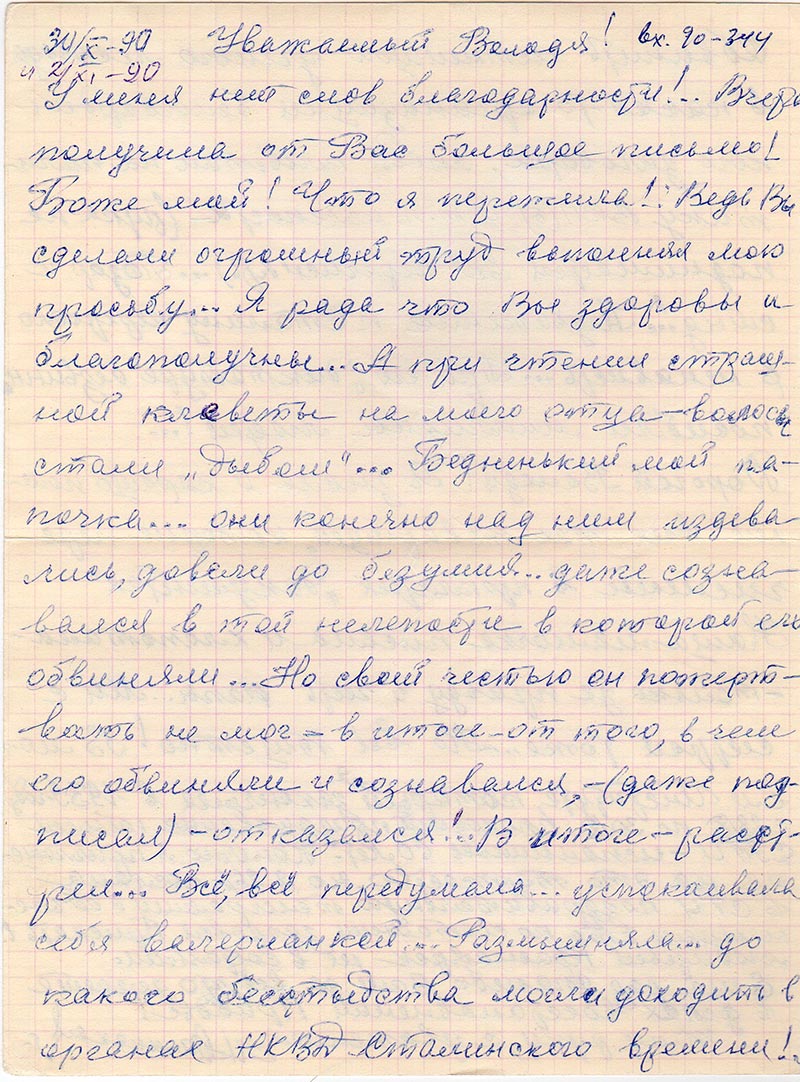 30/X-90 Уважаемый Володя! вх. 90-344
и 2/XI-90
У меня нет слов благодарности!.. Вчера
получила от Вас большое письмо!
Боже мой! Что я пережила!! Ведь Вы
сделали огромный труд выполняя мою
просьбу... Я рада что Вы здоровы и
благополучны... А при чтении страш-
ной клеветы на моего отца - волосы
стали „дыбом"... Бедненький мой па-
почка... они конечно над ним издева-
лись, довели до безумия... даже созна-
вался в той нелепости в которой его
обвиняли... Но своей честью он пожерт-
вовать не мог - в итоге - от того, в чем
его обвиняли и сознавался, - (даже под-
писал) - отказался!.. В итоге - расст-
рел... Всё, всё передумала... успокаивала
себя валерианкой... Размышляла... до
какого бесстыдства могли доходить в
органах НКВД Сталинского времени!..